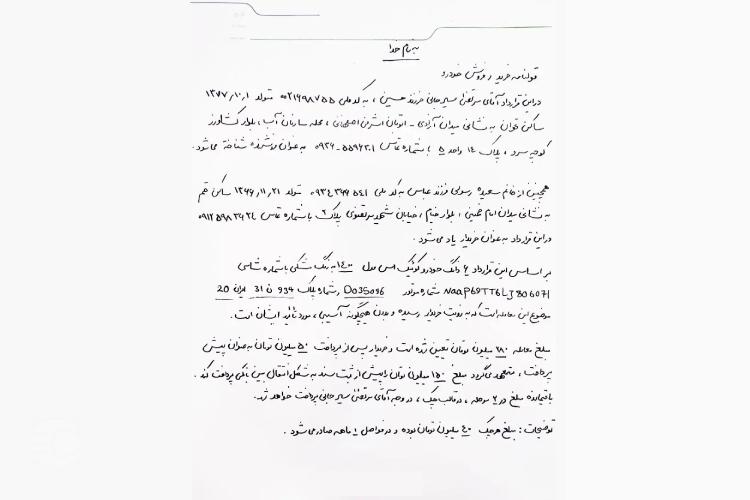 به نام خدا
قولنامه خرید و فروش خودرو
در این قرارداد آقای مرتضی میرجانی فرزند حسین ، به کد ملی ۰۰۲۱۶۹۸۷۵۵ متولد ۱۳۷۷/۱۰/۱
ساکن تهران به نشانی میدان آزادی - اتوبان اشرفی اصفهانی ، محله سازمان آب ، بلوار کشاورز
کوچه سرو ، پلاک ۱۴ واحد ۵ با شماره تماس ۰۹۳۶۰۵۵۹۶۲۰۱ به عنوان فروشنده شناخته می‌شود.
همچنین از خانم سعیده رسولی فرزند عباس به کد ملی متولد ۱۳۶۶/۱۱/۲۱ ساکن قم
به نشانی میدان امام خمینی ، بلوار خیام ، خیابان شهید مرتضوی پلاک ۶ با شماره تماس
در این قرارداد به عنوان خریدار یاد می‌شود .
بر اساس این قرارداد ۶ دانگ خودرو کوئیک اس مدل ۱۴۰۰ به رنگ مشکی با شماره شاسی
NAAP69TT6LJ806071 شماره موتور D035096 و شماره پلاک 934 ن 31 ایران 20
موضوع این معامله است که به رویت خریدار رسیده و بدون هیچگونه آسیبی ، مورد تائید ایشان است.
مبلغ معامله ۲۸۰ میلیون تومان تعیین شده است و خریدار پس از پرداخت ۵۰ میلیون تومان به عنوان پیش
پرداخت ، متعهد می‌گردد مبلغ ۱۵۰ میلیون تومان را پیش از ثبت سند به شکل انتقال بین بانکی پرداخت کند .
باقیمانده مبلغ در ۲ مرحله ، در قالب چک ، در وجه آقای مرتضی میرجانی پرداخت خواهد شد.
توضیحات : مبلغ هر چک ۴۰ میلیون تومان بوده و در فواصل ماهه صادر می‌شود .